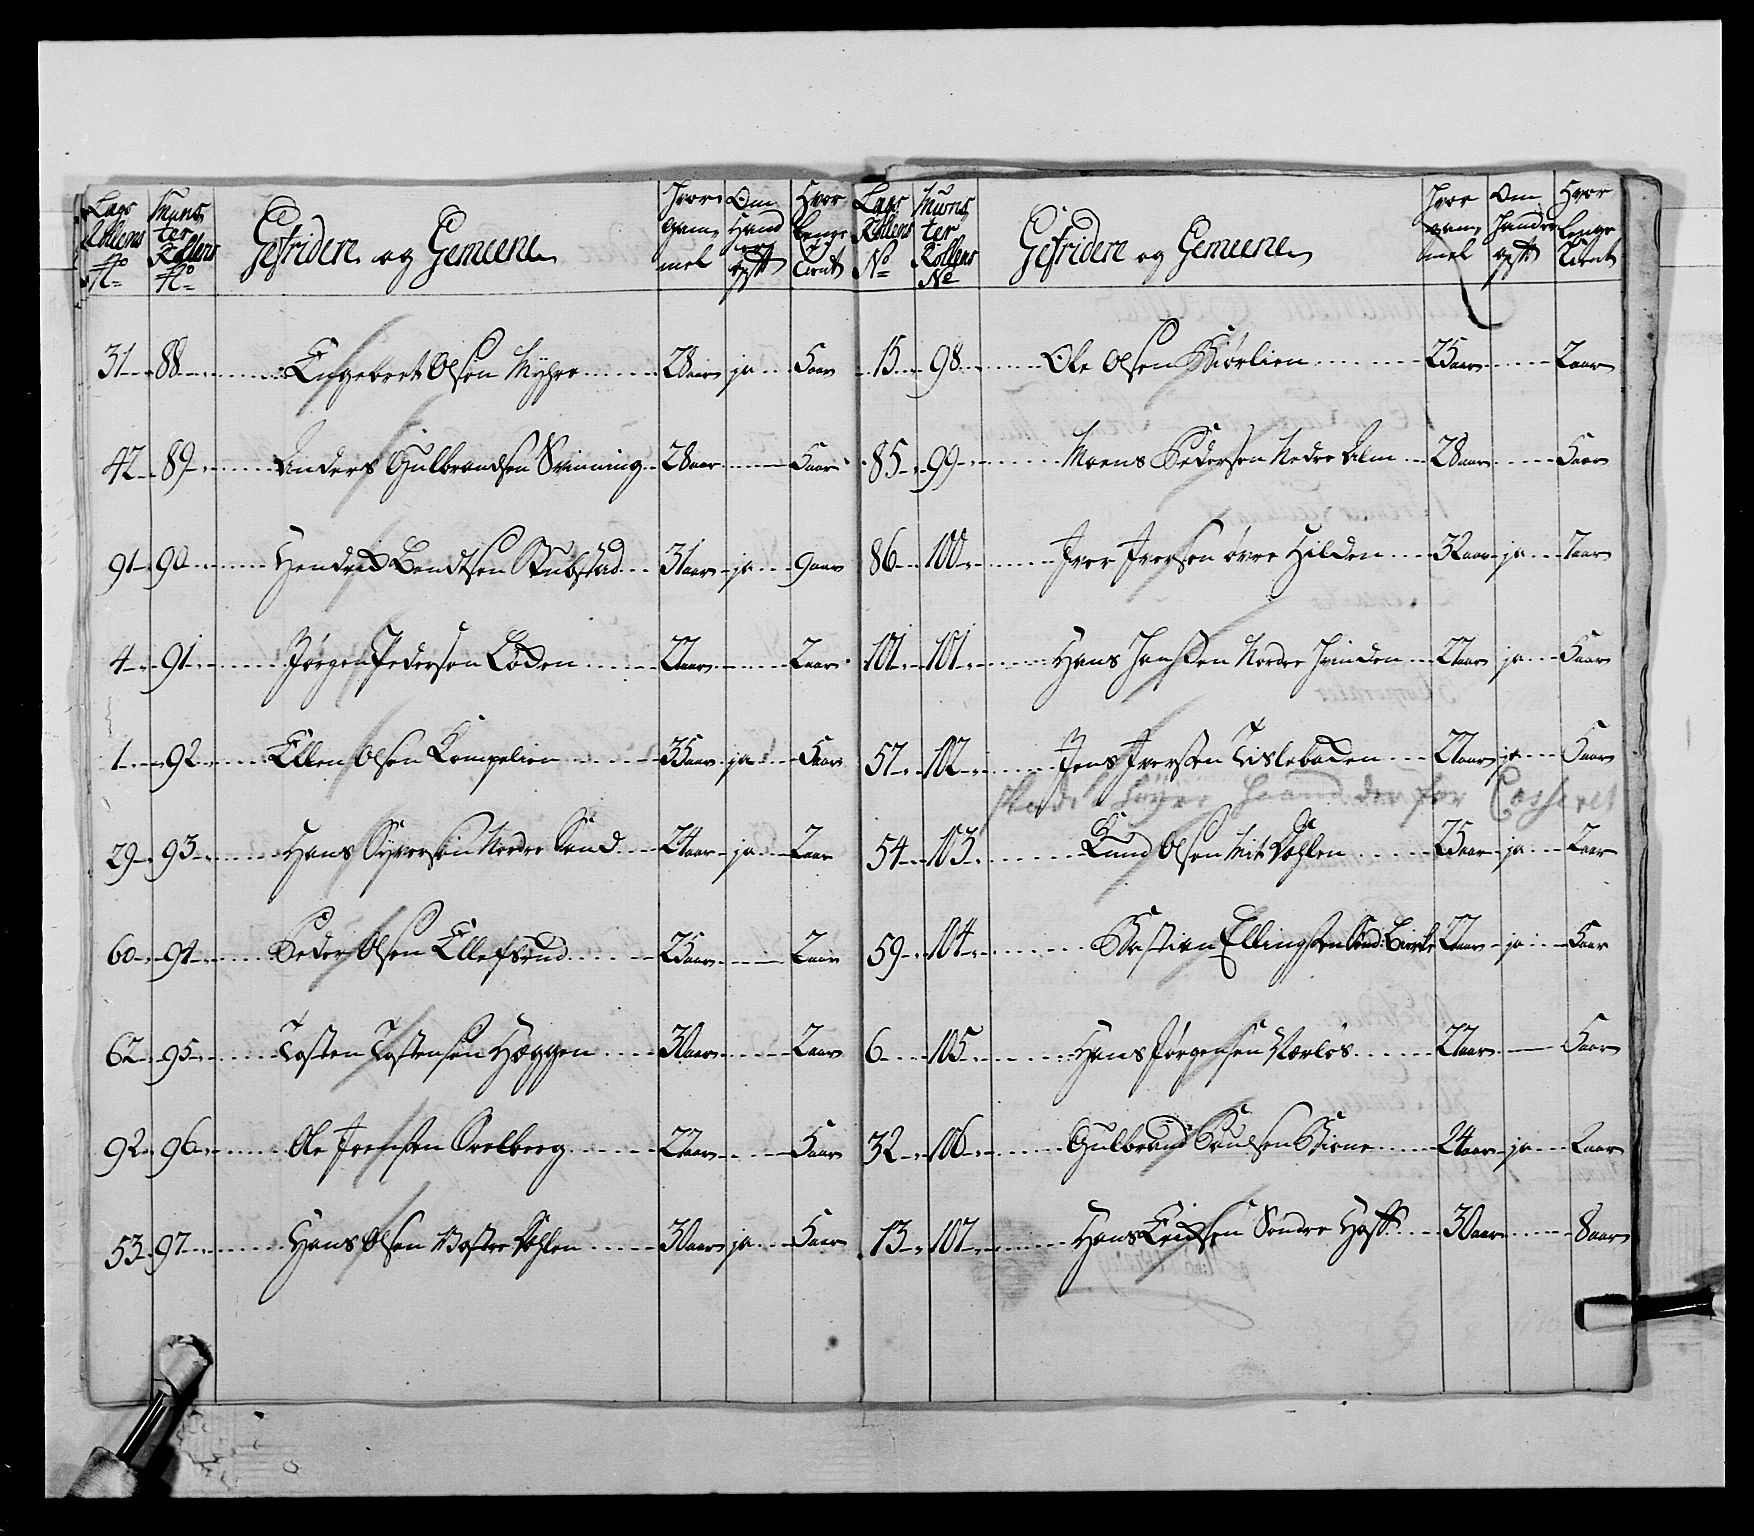 Lægs Rollens No
Munster Rollens No
Gefridere og Gemeene
Hvor gammel
Om Hand er gift
Hvor Lenge Tient
31 88 Engebret Olsen Myhre 28aar ja 5aar
42 89 Anders Gulbrandsen Svinning 28aar 5aar
91 90 Hendrich Bendtsen Stubstad 31aar ja 9aar
4 91 Jørgen Pedersen Løken 22aar 2aar
1 92 Ellen Olsen Lompelien 35aar ja 5aar
29 93 Hans Syversen Nordre Sand 24aar ja 2aar
60 94 Peder Olsen Ellefsrud 25aar 2aar
62 95 Tosten Tostensen Hæggen 30aar 2aar
92 96 Ole Iversen Soelberg 22aar 5aar
53 97 Hans Olsen Østre Dahlen 30aar ja 5aar
Lægs Rollens No
Munster Rollens No
Gefridere og Gemeene
Hvor gammel
Om Hand er gift
Hvor Lenge Tient
15 98 Ole Olsen Kiørlien 25aar 2aar
85 99 Moens Pedersen Nedre Alm 28aar 5aar
86 100 Iver Iversen øvre Hilden 32aar ja 7aar
101 101 Hans Hansen Nordre Hvinden 27aar ja 5aar
57 102 Jens Iversen Tislebaden 27aar ja 5aar
høyre haand derfor Casseret
54 103 Knud Olsen Mit Dahlen 25aar ja 2aar
59 104 Kastian Ellingsen Sønd: Bierke 22aar ja 5aar
6 105 Hans Jørgensen Værløs 27aar 5aar
32 106 Gulbrand Knudsen Kione 24aar ja 2aar
13 107 Hans Erichsen Søndre Hoff 30aar 8aar